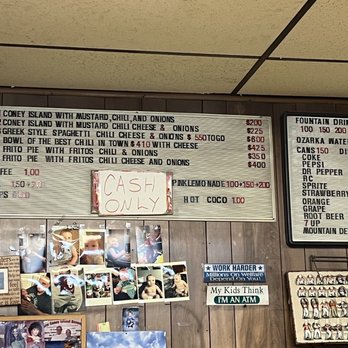 CONEY ISLAND WITH MUSTARD, CHILI, AND ONIONS $200
CONEY ISLAND WITH MUSTARD CHILI CHEESE & ONIONS $225
GREEK STYLE SPAGHETTI CHILI CHEESE AND ONIONS $550 TO GO $600
BOWL OF THE BEST CHILI IN TOWN $410 WITH CHEESE $425
FRITO PIE WITH FRITOS CHILI & ONIONS $350
FRITO PIE WITH FRITOS CHILI CHEESE AND ONIONS $400
FFEE 1.00
150 PINK LEMONADE 100•150•200
HOT COCO 1.00
CASH
ONLY
FOUNTAIN DRINK
100 150 200
OZARKA WATER
CANS 150
COKE
PEPSI
DR PEPPER
RC
SPRITE
STRAWBERRY
ORANGE
GRAPE
ROOT BEER
7 UP
MOUNTAIN DE
WORK HARDER
Millions On Welfare
Depend on You!
My Kids Think
I'M AN ATM